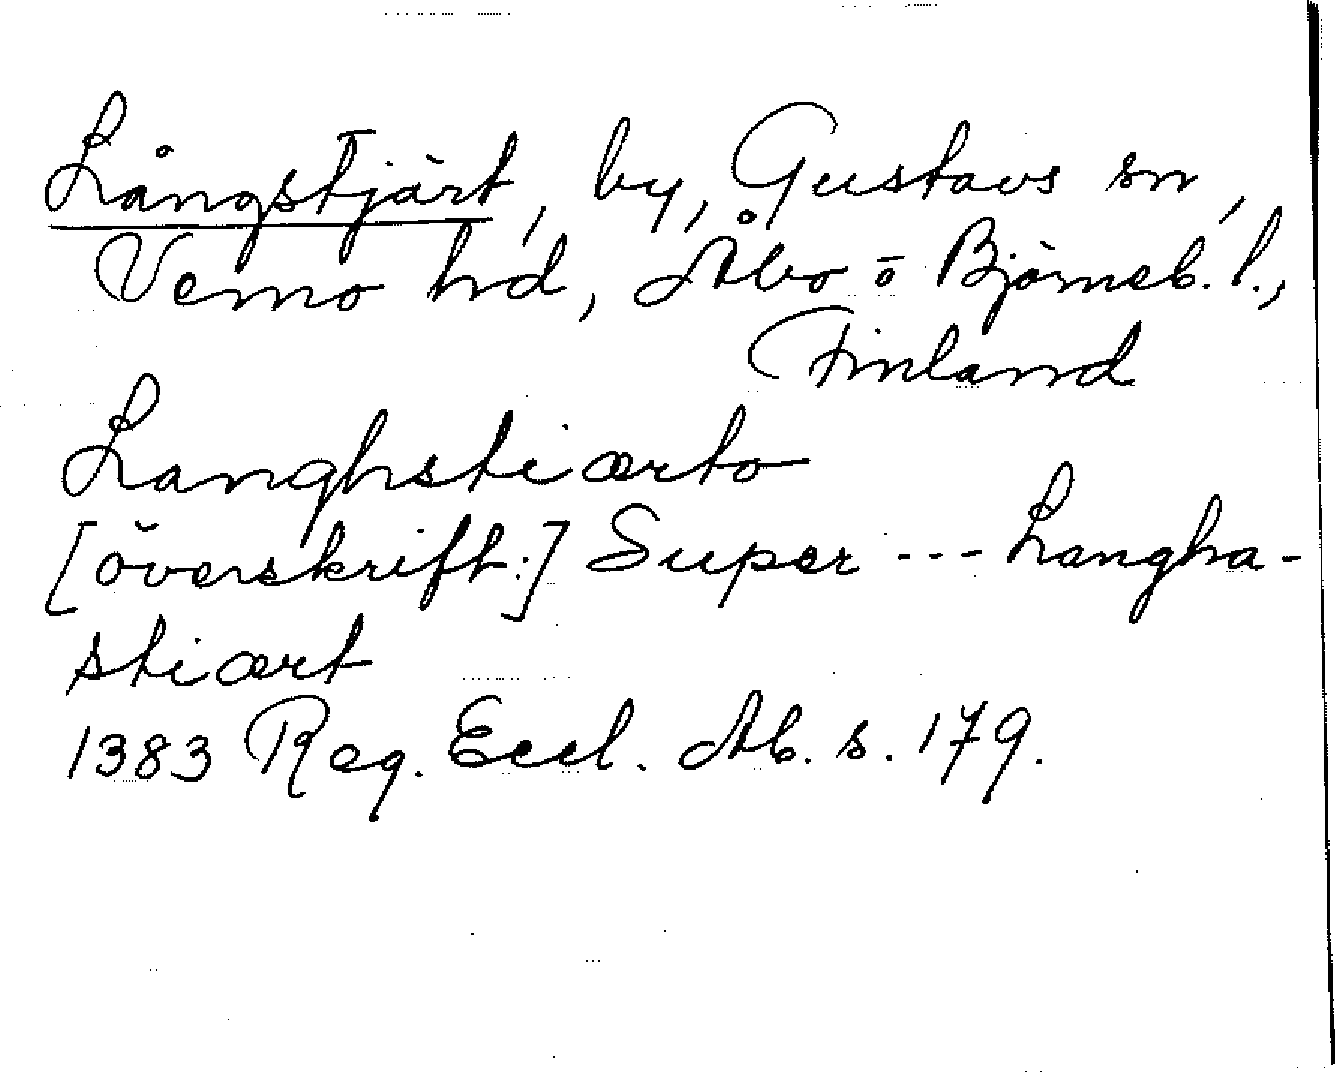 Långstjärt, by, Gustavs sn,
Vemo hd, Åbo o Björneb. l.,
Finland
Langhstiærto
[överskrift:] Super --- Langha-
stiært
1383 Reg. Eccl. Ab. s. 179.